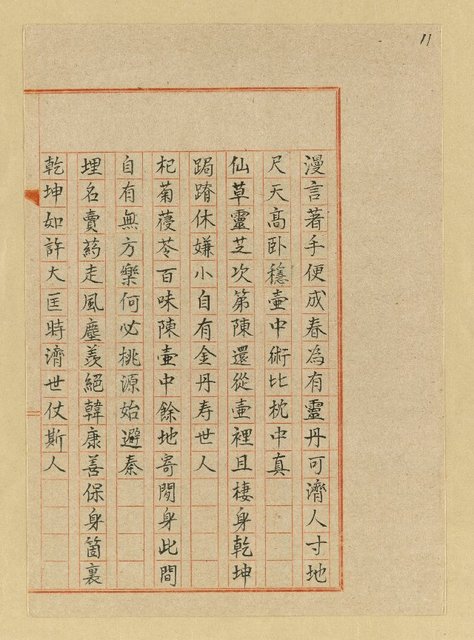 11
漫言著手便成春為有靈丹可濟人寸地
尺天高卧穩壺中術比枕中真
仙草靈芝次第陳還從壺裡且棲身乾坤
跼蹐休嫌小自有金丹寿世人
杞菊蓡苓百味陳壷中餘地寄閒身此間
自有無方樂何必桃源始避秦
埋名賣葯走風塵羨絕韓康善保身箇裏
乾坤如許大匡時濟世仗斯人